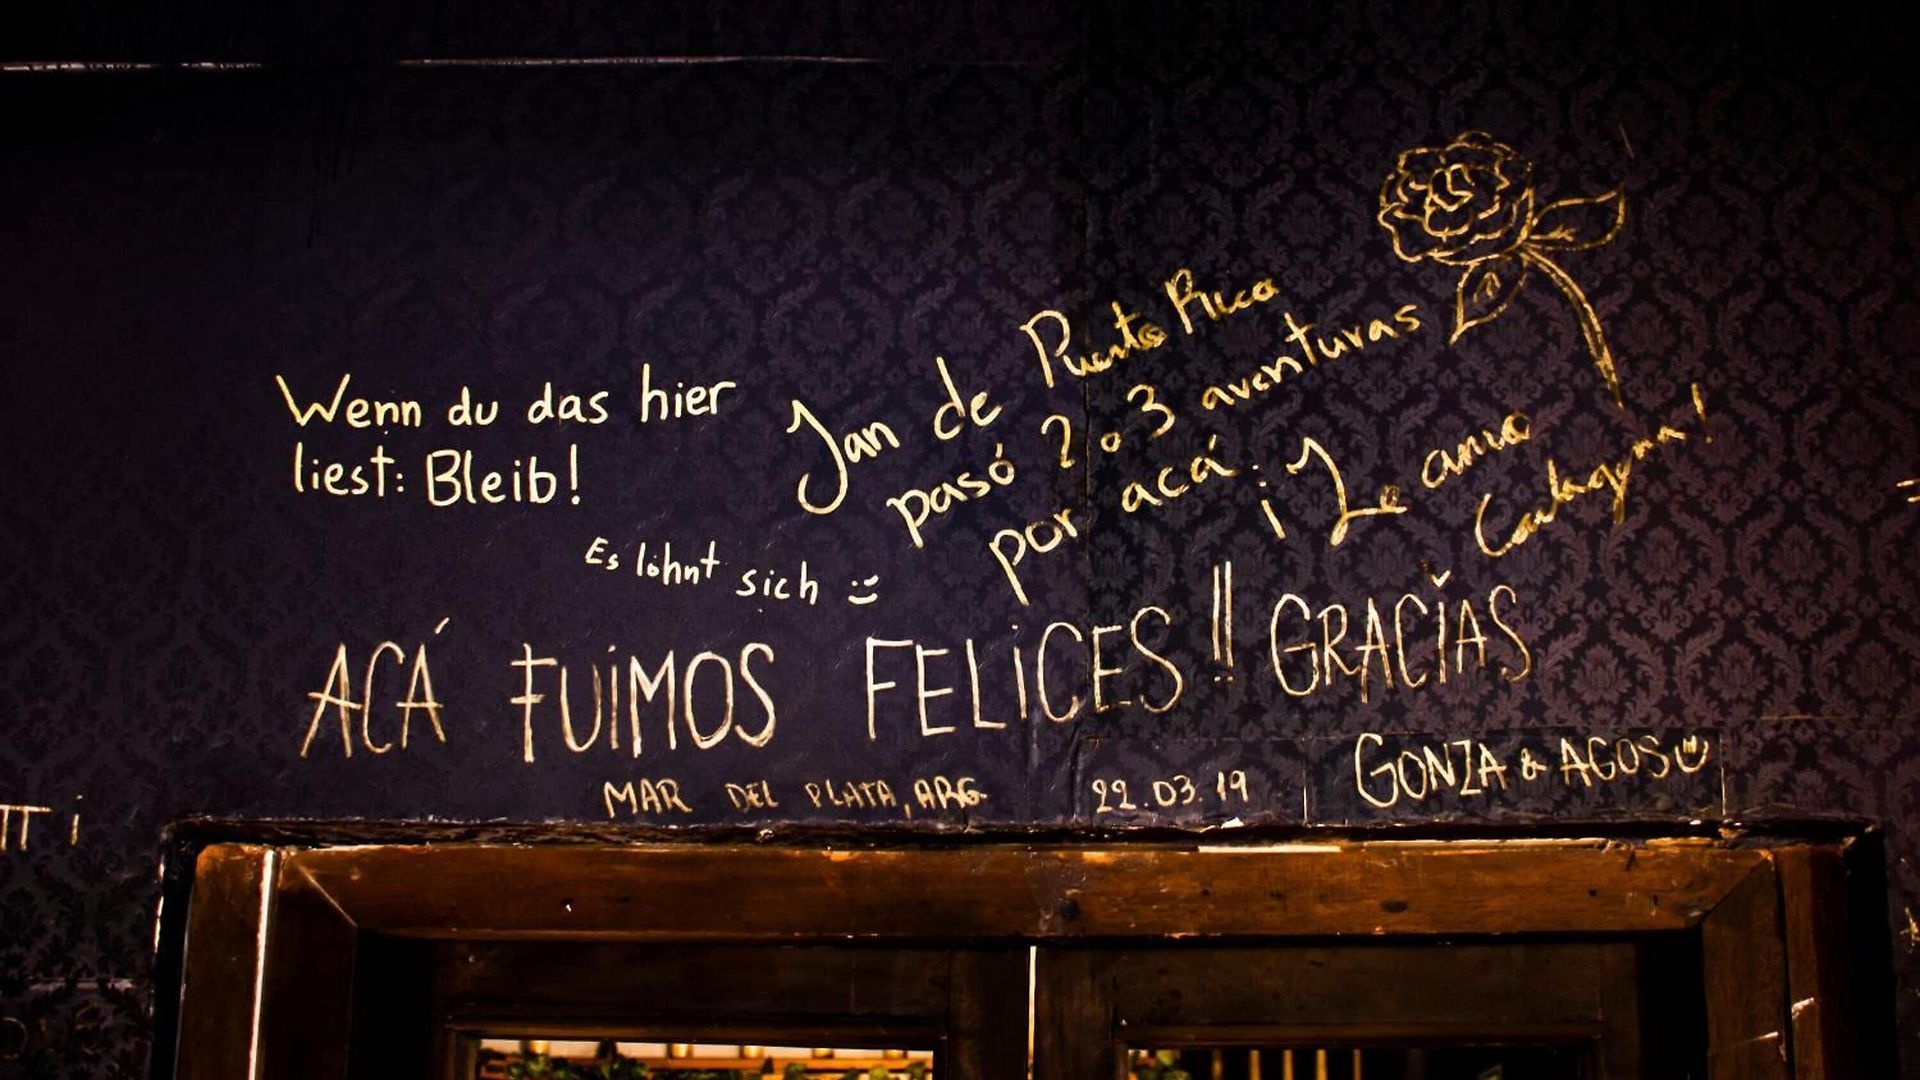 Wenn du das hier
liest: Bleib!
Es lohnt sich :)
Jan de Puerto Rico
pasó 2 o 3 aventuras
por acá. ¡Le amo
Cartagena!
ACÁ FUiMOS FELiCES!! GRACiAS
MAR DEL PLATA, ARG. 22.03.19 GONZA & AGOS